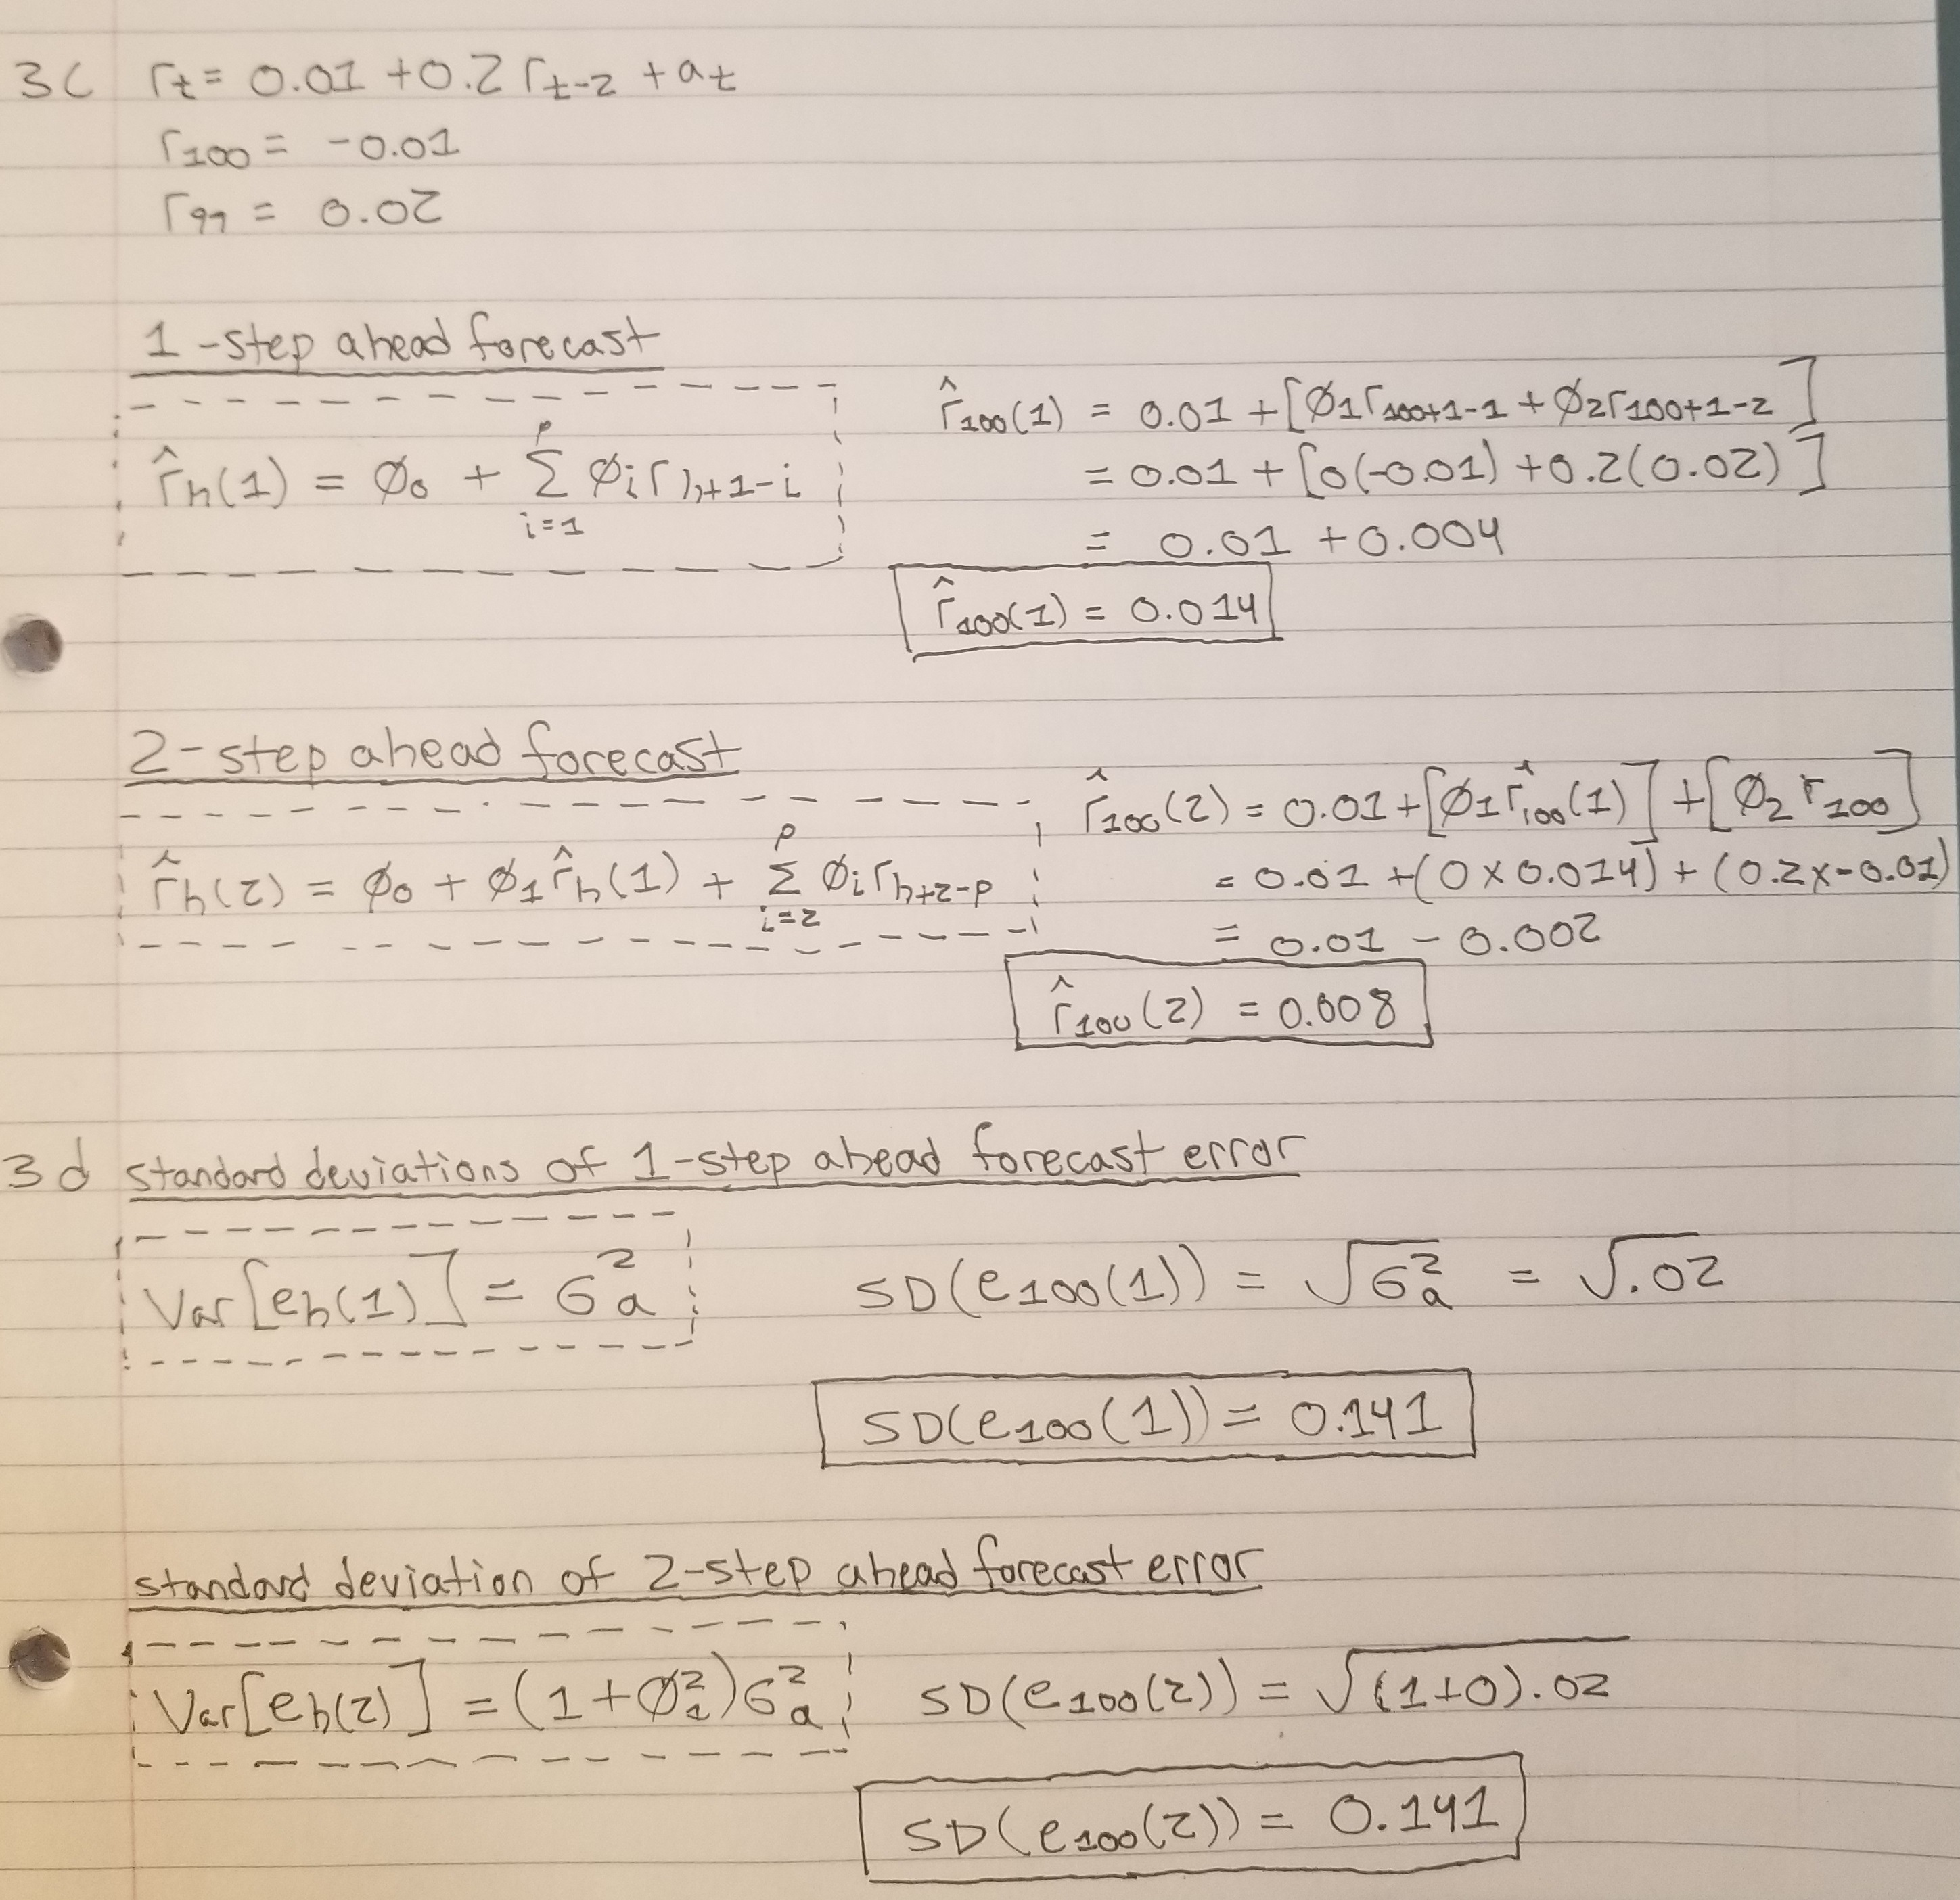 3c r_t = 0.01 + 0.2 r_{t-2} + a_t
r_100 = -0.01
r_99 = 0.02
1-step ahead forecast
r̂_h(1) = φ_0 + Σ_{i=1}^{p} φ_i r_{h+1-i}
r̂_100(1) = 0.01 + [φ_1 r_{100+1-1} + φ_2 r_{100+1-2}]
= 0.01 + [0(-0.01) + 0.2(0.02)]
= 0.01 + 0.004
r̂_100(1) = 0.014
2-step ahead forecast
r̂_h(2) = φ_0 + φ_1 r̂_h(1) + Σ_{i=2}^{p} φ_i r_{h+2-p}
r̂_100(2) = 0.01 + [φ_1 r̂_100(1)] + [φ_2 r_100]
= 0.01 + (0 x 0.014) + (0.2 x -0.01)
= 0.01 - 0.002
r̂_100(2) = 0.008
3d standard deviations of 1-step ahead forecast error
Var[e_h(1)] = σ_a^2
SD(e_100(1)) = √σ_a^2 = √.02
SD(e_100(1)) = 0.141
standard deviation of 2-step ahead forecast error
Var[e_h(2)] = (1 + φ_1^2)σ_a^2
SD(e_100(2)) = √(1+0).02
SD(e_100(2)) = 0.141